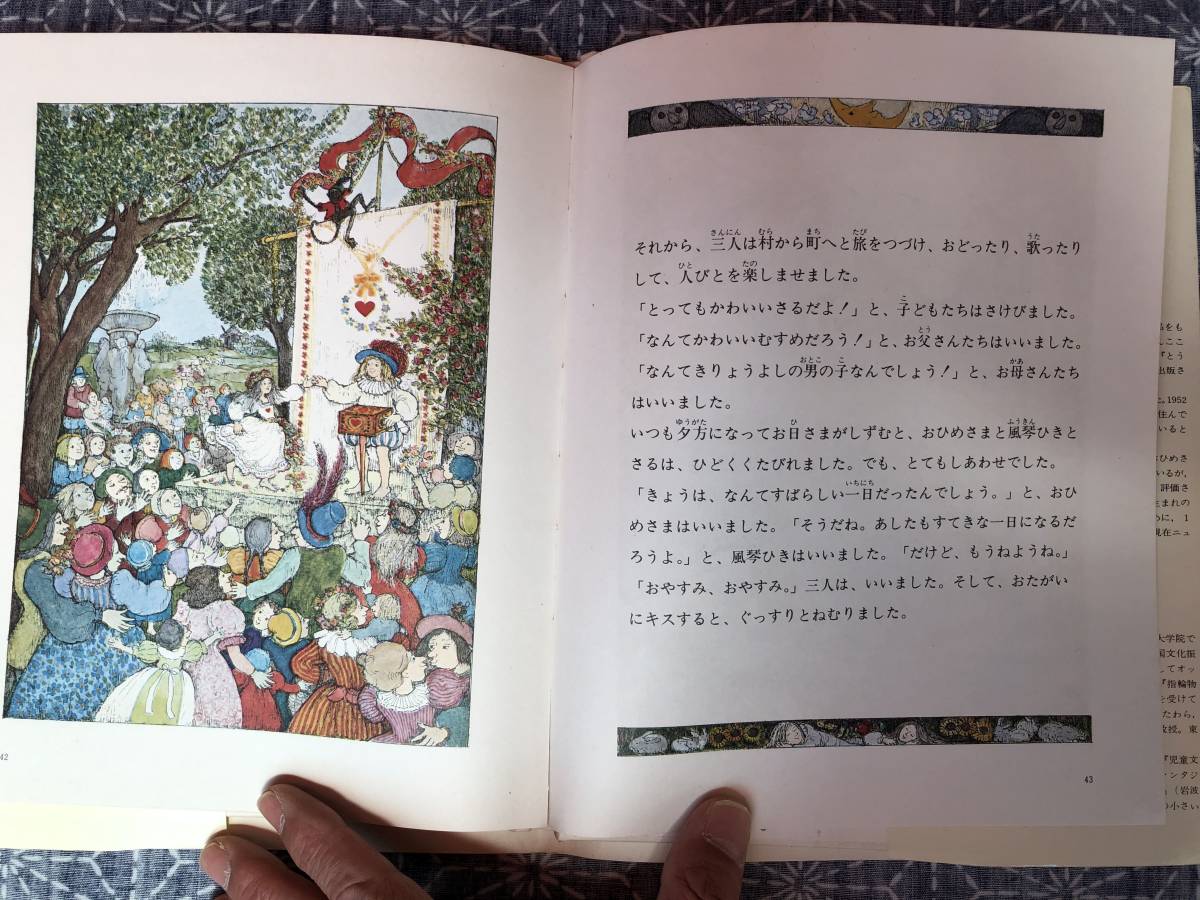 それから、三人は村から町へと旅をつづけ、おどったり、歌ったり
して、人びとを楽しませました。
「とってもかわいいさるだよ！」と、子どもたちはさけびました。
「なんてかわいいむすめだろう！」と、お父さんたちはいいました。
「なんてきりょうよしの男の子なんでしょう！」と、お母さんたち
はいいました。
いつも夕方になってお日さまがしずむと、おひめさまと風琴ひきと
さるは、ひどくくたびれました。でも、とてもしあわせでした。
「きょうは、なんてすばらしい一日だったんでしょう。」と、おひ
めさまはいいました。「そうだね。あしたもすてきな一日になるだ
ろうよ。」と、風琴ひきはいいました。「だけど、もうねようね。」
「おやすみ、おやすみ。」三人は、いいました。そして、おたがい
にキスすると、ぐっすりとねむりました。
42
43
品をも
んここ
『とう
出版さ
1952
住んで
いると
おひめさ
いるが、
評価さ
生まれの
めに、1
現在ニュ
大学院で
国文化振
してオッ
『指輪物
を受けて
たわら、
教授。東
『児童文
ァンタジ
』（岩波
の小さい